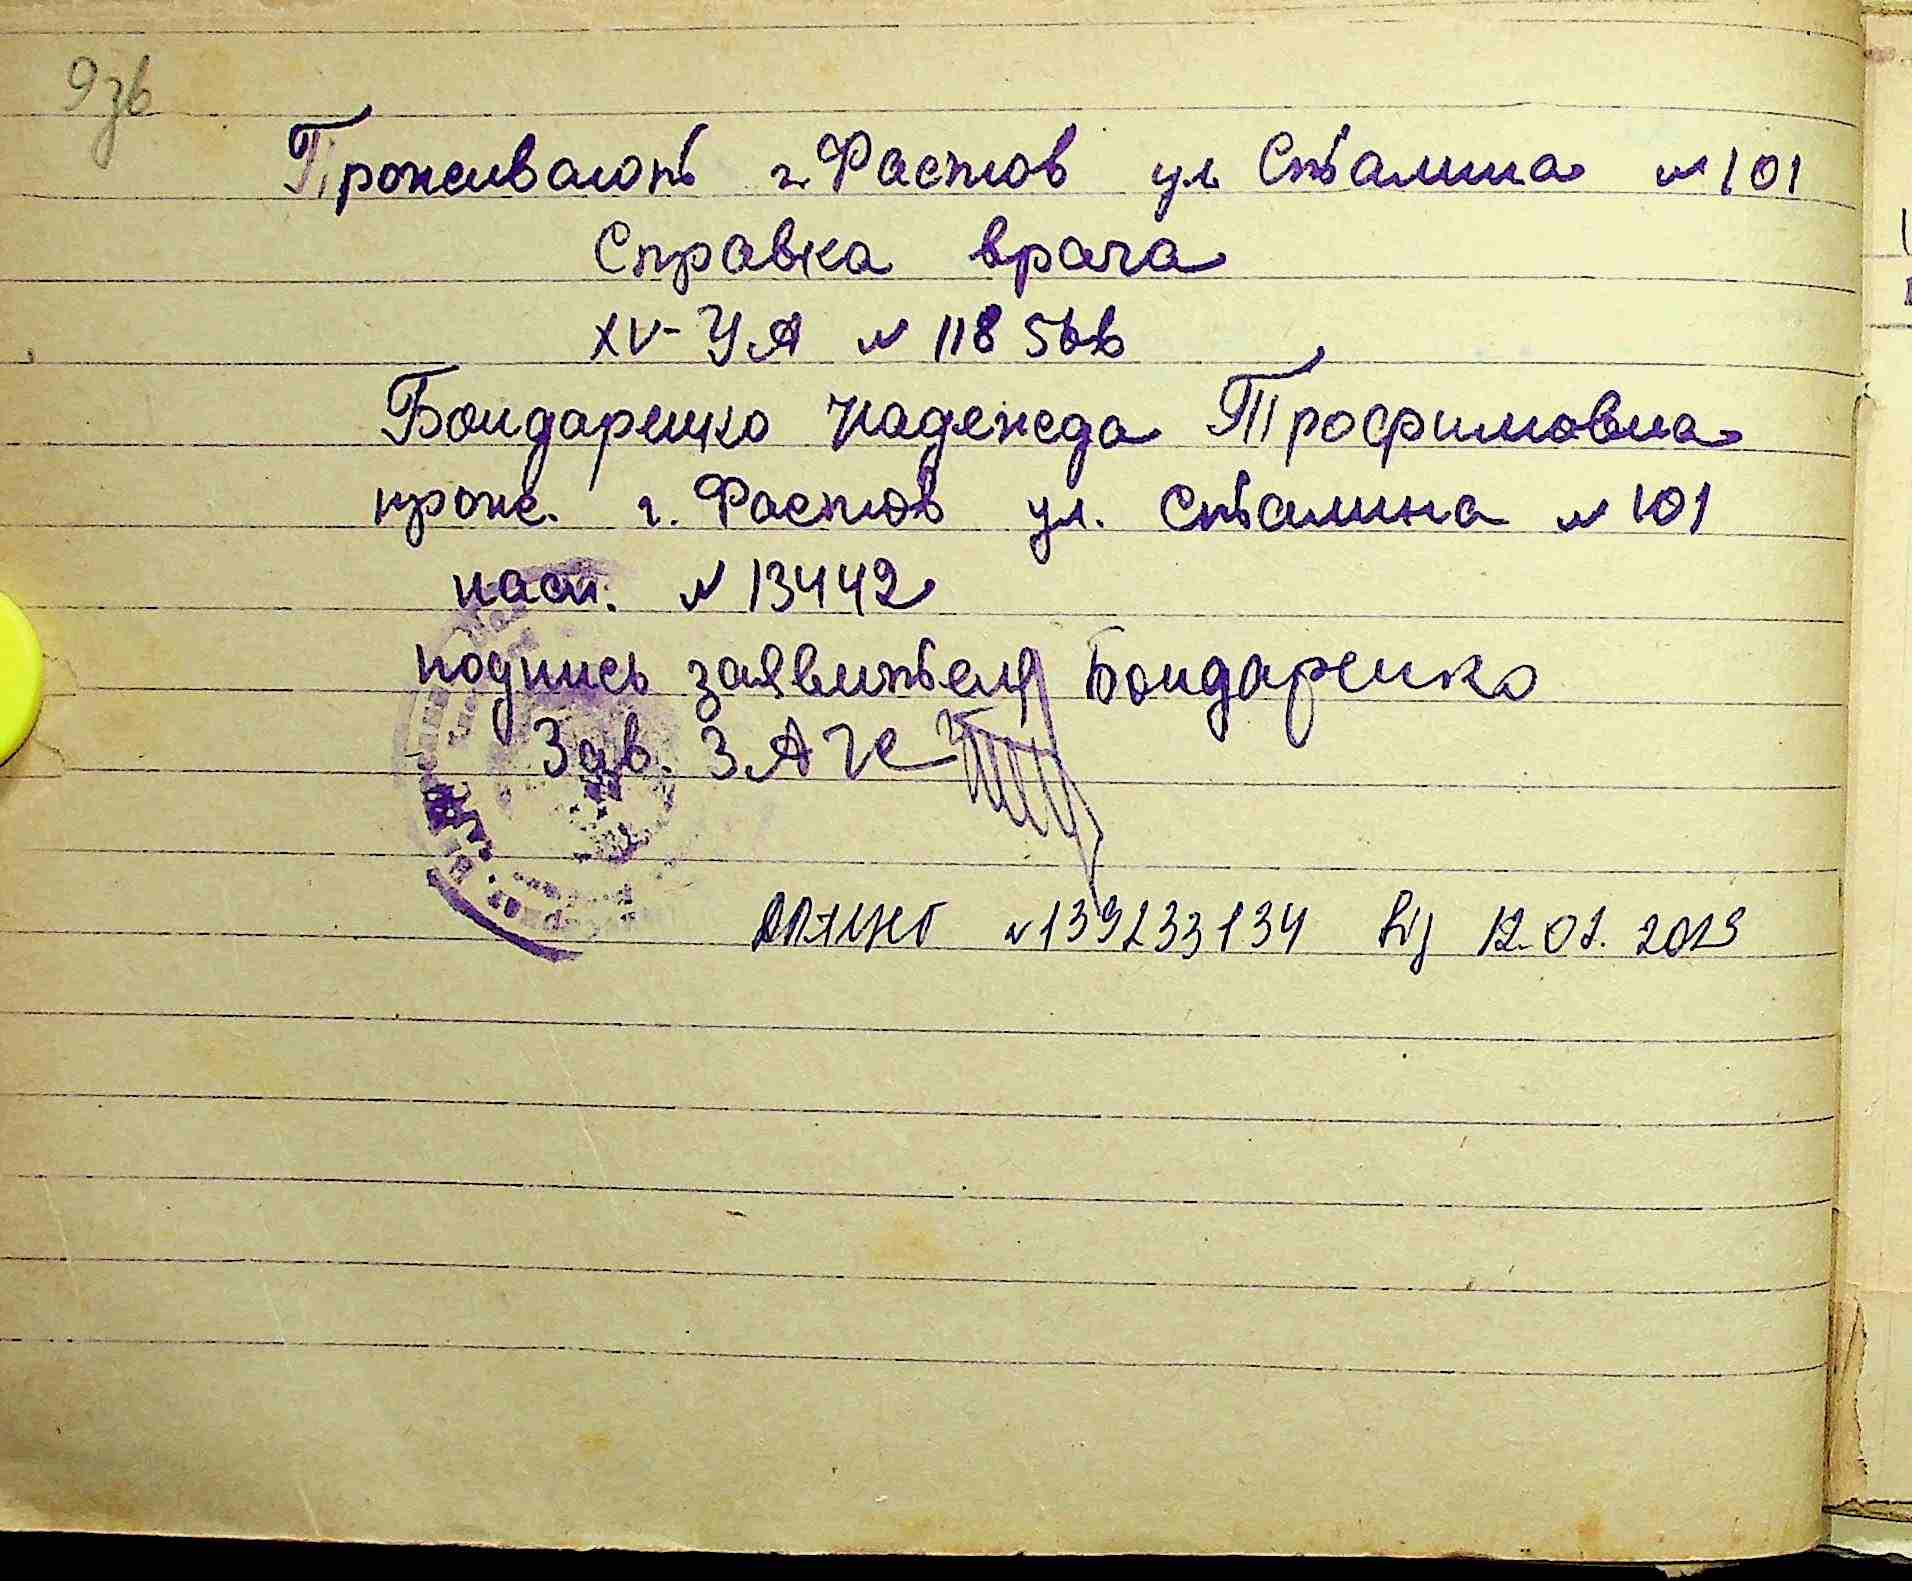 9зв
Проживают г. Фастов ул Сталина № 101
Справка врача
XV-УА № 118566
Бондаренко Надежда Трофимовна
прож. г. Фастов ул. Сталина № 101
пасп. № 13442
подпись заявителя Бондаренко
Зав. ЗАГС
№ 139233134 від 12.01.2019